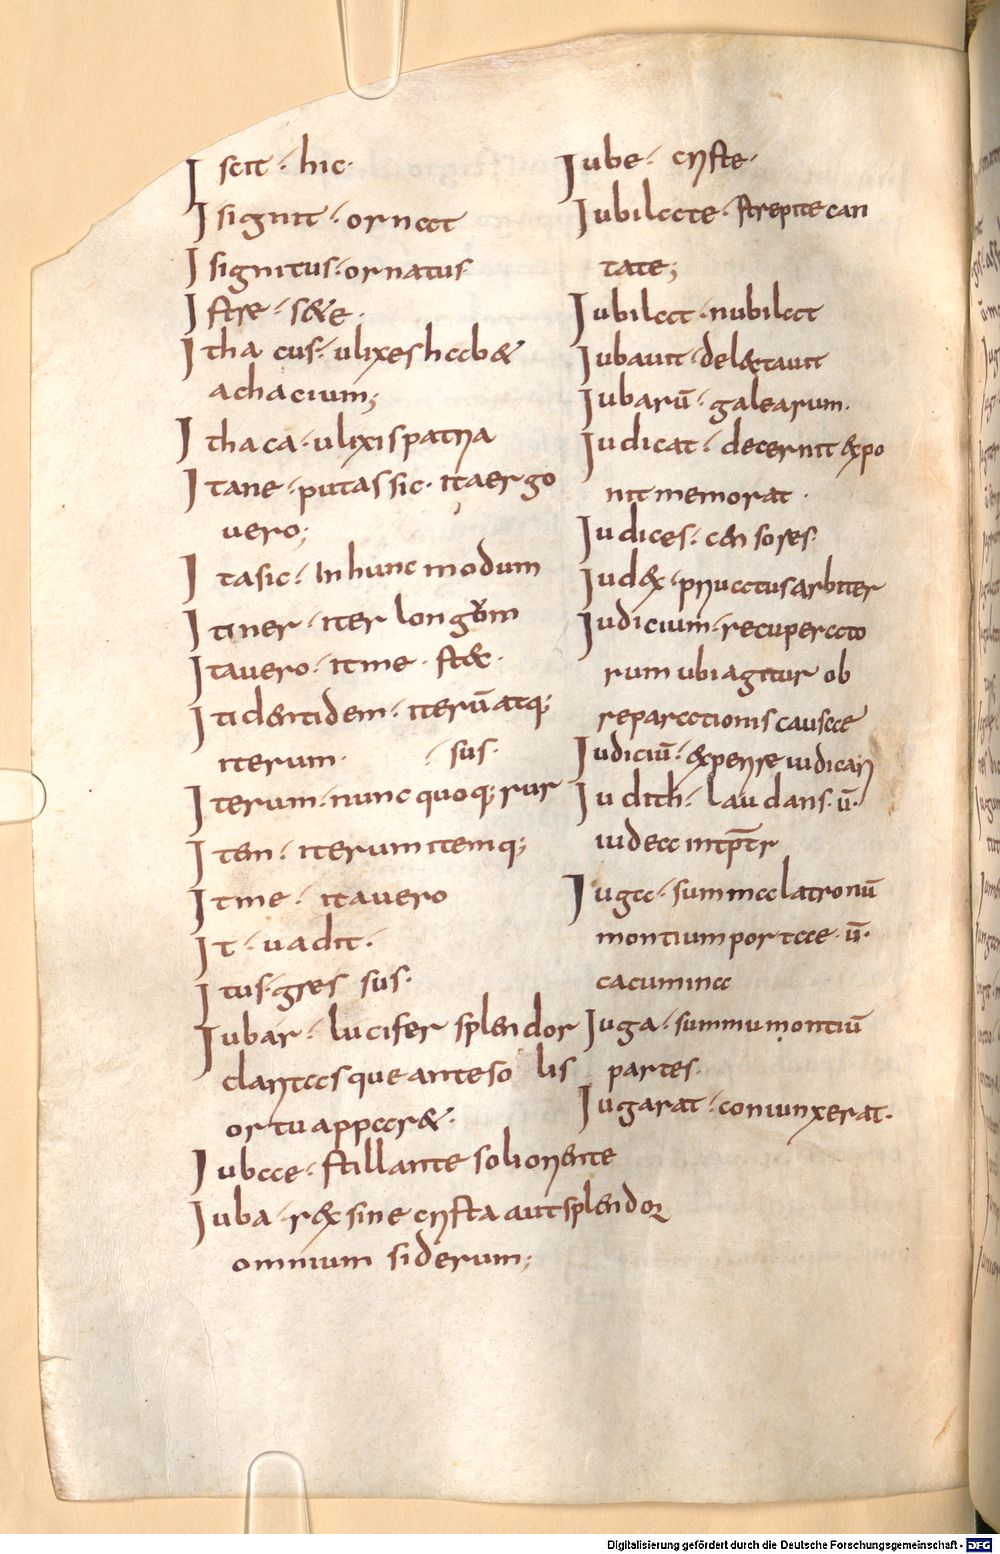 Iscit· hic·
Isignit· ornaat
Isignitus· ornatus
Istre· s&e·
Ithacus· ulixes hab&
achacium;
Ithaca· ulixis patria
Itane· putas sic· itaergo
uero;
Itasic· In hunc modum
Itiner· iter longum
Itauero· itme· st&·
Itidentidem· iterū atq;
iterum· sus·
Iterum· nunc quoq; rur
Item· iterum itemq;
Itme· itauero
It· uadit·
Itus· gres sus·
Iubar· lucifer splendor
claritas que ante so lis
ortu appar&·
Iubae· stillante soli oriente
Iuba· rex sine crista aut splendor
omnium siderum;
Iube· criste·
Iubilate· strepite can
tate;
Iubilat· nubilat
Iubauit· delectauit
Iubarū· galearum·
Iudicat· decernit expo
nit memorat·
Iudices· censores·
Iudex· priuatus arbiter
Iudicium· recuperato
rum ubi agitur ob
reparationis causae
Iudiciū· experire iudicari
Iudith· laudans· ū·
iudea intptr
Iuga· summa latronū
montium portae· ū·
cacumina
Iuga· summu montiū
partes·
Iugarat· coniunxerat·
Digitalisierung gefördert durch die Deutsche Forschungsgemeinschaft - DFG